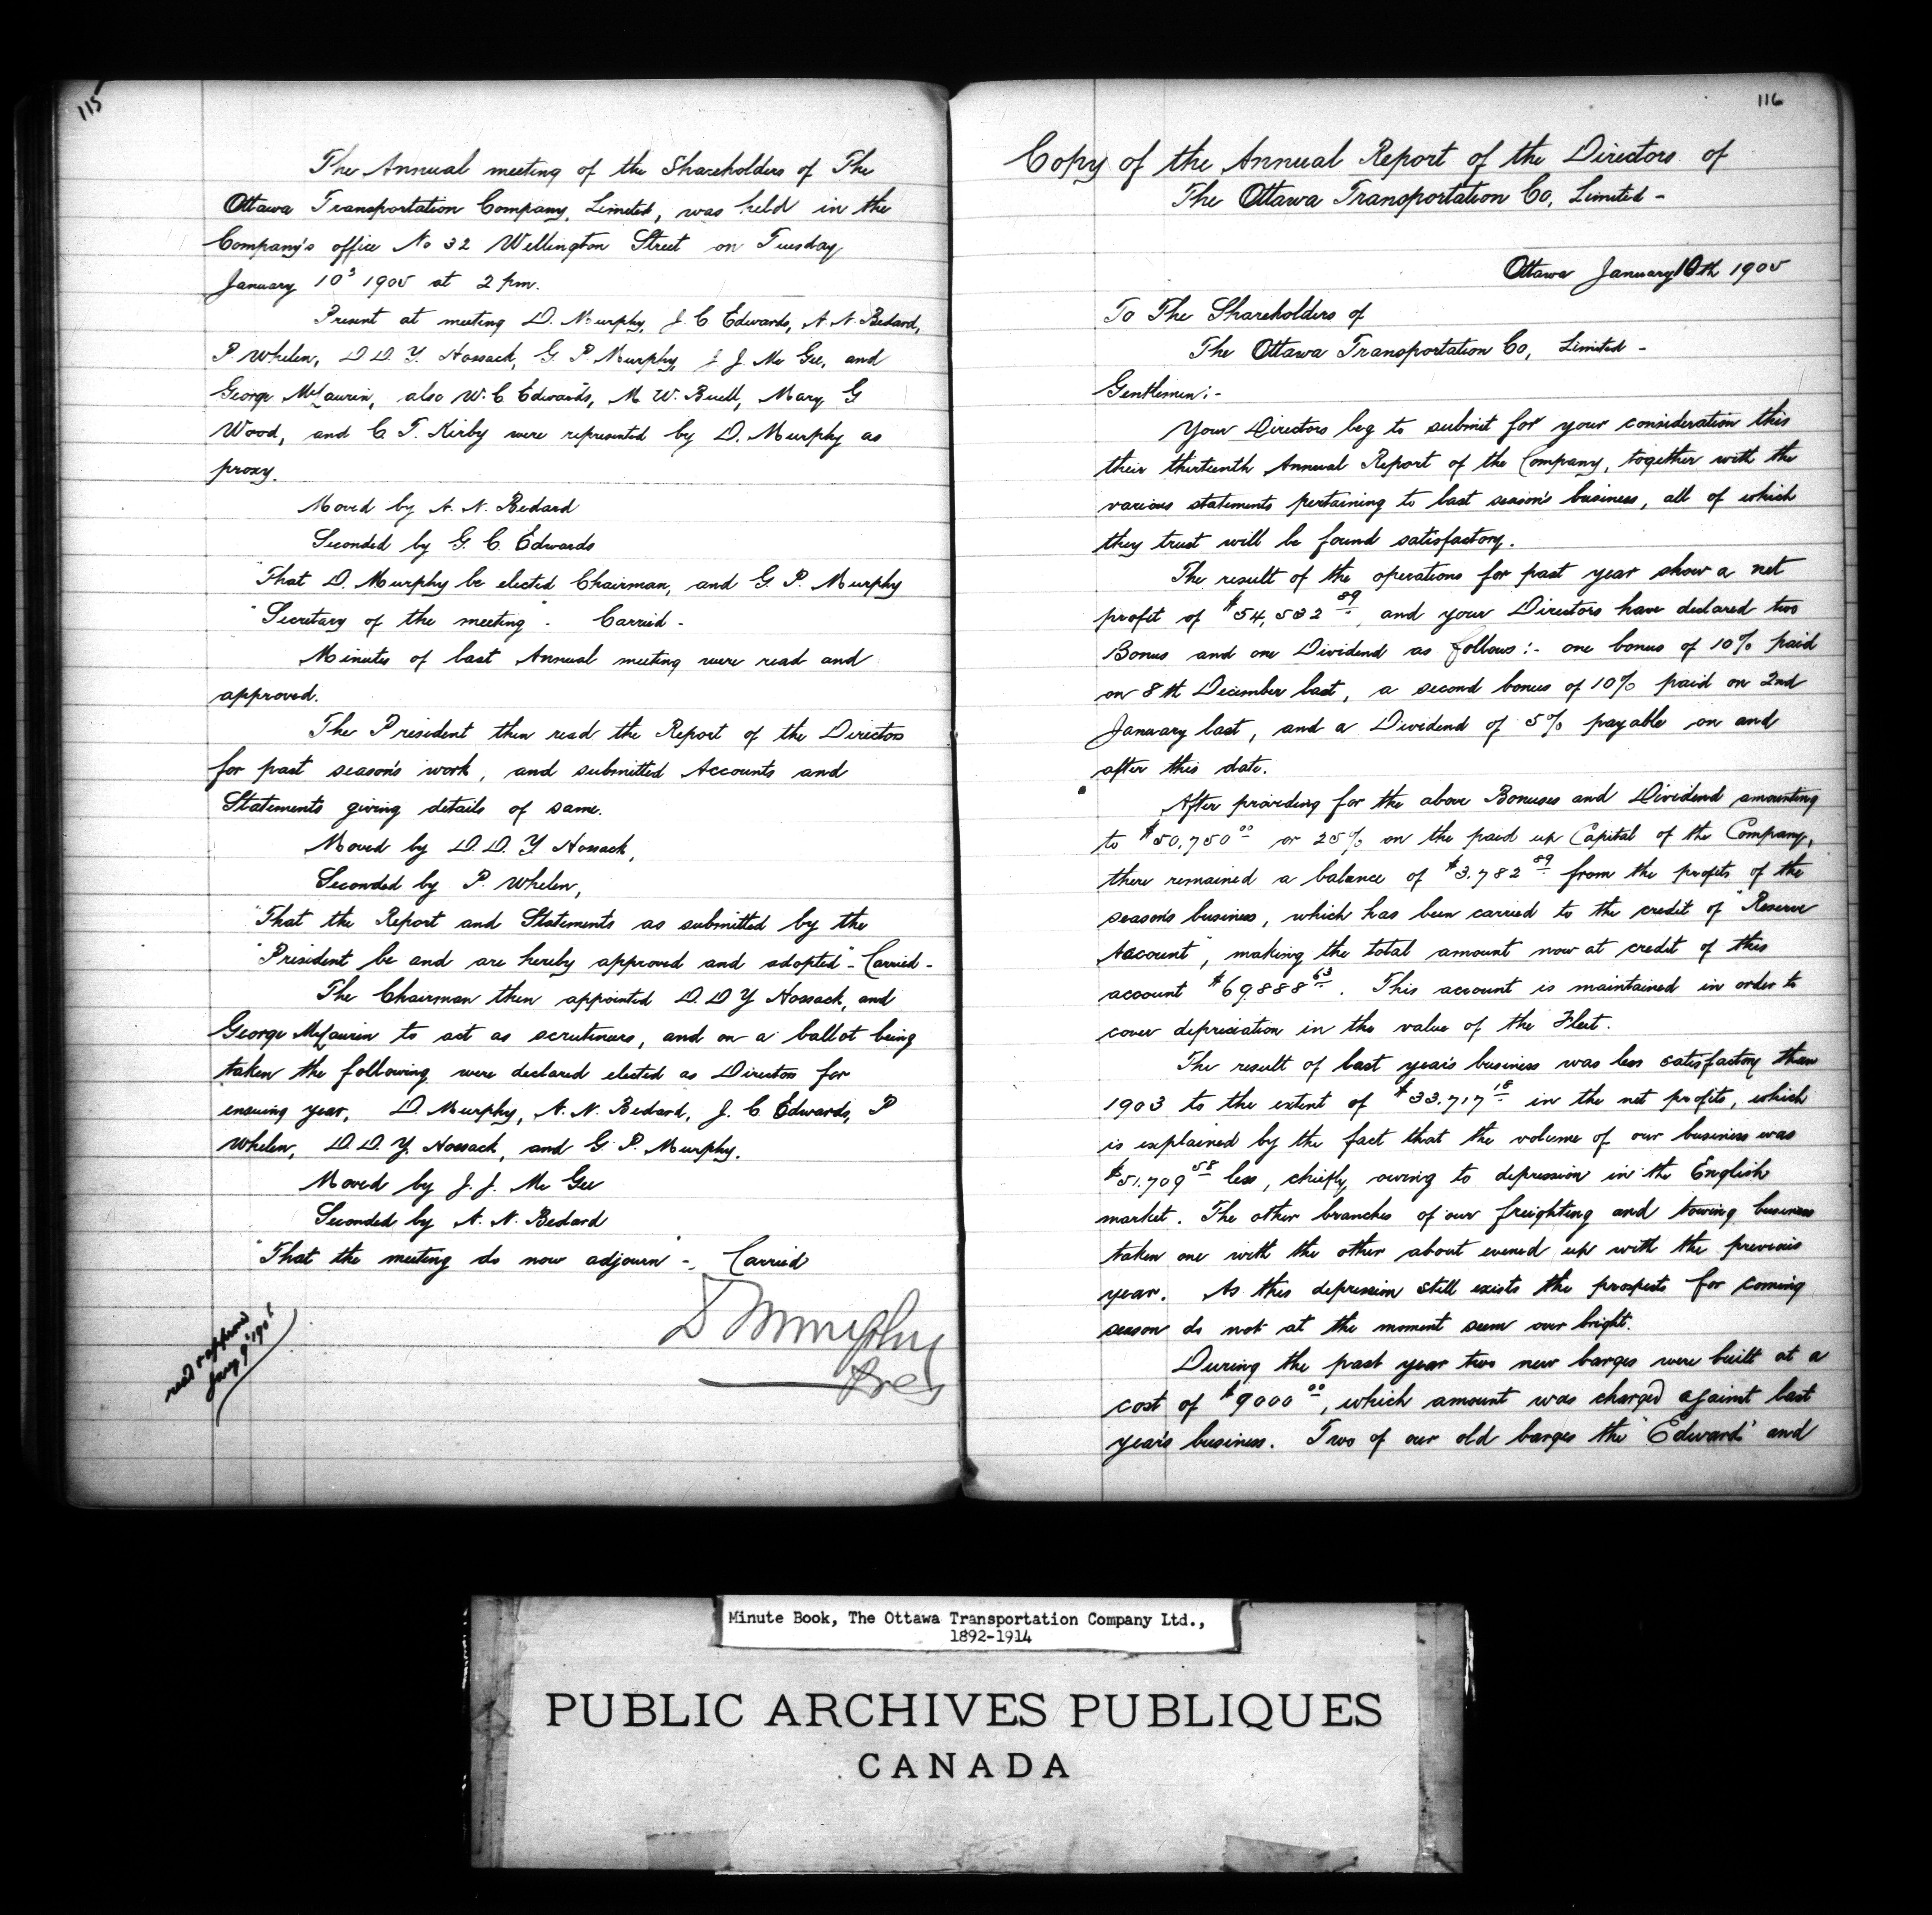 115
The Annual meeting of the Shareholders of The
Ottawa Transportation Company, Limited, was held in the
Company's office No 32 Wellington Street on Tuesday
January 10th 1905 at 2 pm.
Present at meeting D. Murphy, J. C Edwards, A. N. Bedard,
P. Whelen, D. D. Y. Hossack, G. P. Murphy, J. J. Mc Gee, and
George McLaurin, also W. C Edwards, M. W. Buell, Mary G
Wood, and C. T. Kirby were represented by D. Murphy as
proxy.
Moved by A. N. Bedard
Seconded by G. C. Edwards
"That D. Murphy be elected Chairman, and G. P. Murphy
"Secretary of the meeting" - Carried -
Minutes of last Annual meeting were read and
approved.
The President then read the Report of the Directors
for past season's work, and submitted Accounts and
Statements giving details of same.
Moved by D. D. Y Hossack,
Seconded by P. Whelen,
"That the Report and Statements as submitted by the
"President be and are hereby approved and adopted" - Carried -
The Chairman then appointed D. D Y Hossack, and
George McLaurin to act as scrutineers, and on a ballot being
taken the following were declared elected as Directors for
ensuing year, D. Murphy, A. N. Bedard, J. C Edwards, P
Whelen, D. D. Y. Hossack, and G. P. Murphy.
Moved by J. J. Mc Gee
Seconded by A. N. Bedard
"That the meeting do now adjourn" - Carried
D Murphy
Pres
read & approved
Jany 9"
116
Copy of the Annual Report of the Directors of
The Ottawa Transportation Co, Limited -
Ottawa January 10th 1905
To The Shareholders of
The Ottawa Transportation Co, Limited -
Gentlemen:-
Your Directors beg to submit for your consideration this
their thirteenth Annual Report of the Company, together with the
various statements pertaining to last season's business, all of which
they trust will be found satisfactory.
The result of the operations for past year show a net
profit of $54,532 89, and your Directors have declared two
Bonus and one Dividend as follows:- one bonus of 10% paid
on 8th December last, a second bonus of 10% paid on 2nd
January last, and a Dividend of 5% payable on and
after this date.
After providing for the above Bonuses and Dividend amounting
to $50,750 00 or 25% on the paid up Capital of the Company,
there remained a balance of $3,782 89 from the profits of the
season's business, which has been carried to the credit of "Reserve
Account", making the total amount now at credit of this
account $69888 63. This account is maintained in order to
cover depreciation in the value of the Fleet.
The result of last year's business was less satisfactory than
1903 to the extent of $33,717 18 in the net profits, which
is explained by the fact that the volume of our business was
$51,709 58 less, chiefly owing to depression in the English
market. The other branches of our freighting and towing business
taken one with the other about evened up with the previous
year. As this depression still exists the prospects for coming
season do not at the moment seem over bright.
During the past year two new barges were built at a
cost of $9000 00, which amount was charged against last
year's business. Two of our old barges the "Edwards" and
Minute Book, The Ottawa Transportation Company Ltd.,
1892-1914
PUBLIC ARCHIVES PUBLIQUES
CANADA